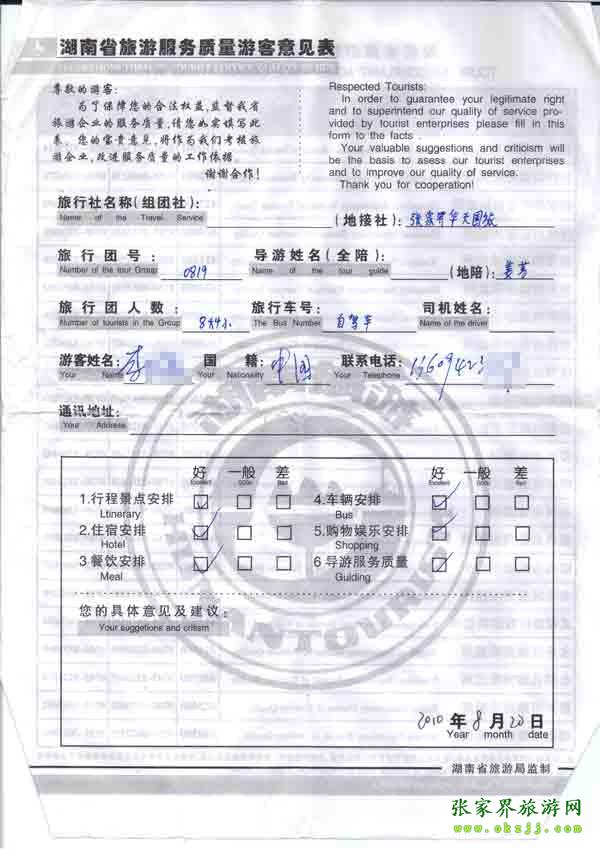 湖南省旅游服务质量游客意见表
尊敬的游客:
为了保障您的合法权益,监督我省
旅游企业的服务质量,请您如实填写此
表。您的宝贵意见,将作为我们考核旅
游企业,改进服务质量的工作依据。
谢谢合作!
Respected Tourists:
In order to guarantee your legitimate right
and to superintend our quality of service pro-
vided by tourist enterprises please fill in this
form to the facts .
Your valuable suggestions and criticism will
be the basis to asess our tourist enterprises
and to improve our quality of service.
Thank you for cooperation!
旅行社名称(组团社): (地接社): 张家界华天国旅
Name of the Travel Service
旅行团号: 0819 导游姓名(全陪): (地陪): 姜芳
Number of the tour Group Name of the tour guide
旅行团人数: 8大4小 旅行车号: 自驾车 司机姓名:
Number of tourists in the Group The Bus Number Name of the driver
游客姓名: 李 国籍: 中国 联系电话:
Your Name Your Nationality Your Telephone
通讯地址:
Your Address
好 一般 差 好 一般 差
Excellent Good Bad Excellent Good Bad
1.行程景点安排 4.车辆安排
Ltinerary Bus
2.住宿安排 5.购物娱乐安排
Hotel Shopping
3 餐饮安排 6 导游服务质量
Meal Guiding
您的具体意见及建议:
Your suggetions and critism
2010 年 8 月 20 日
Year month date
湖南省旅游局监制
张家界旅游网
www.okzjj.com